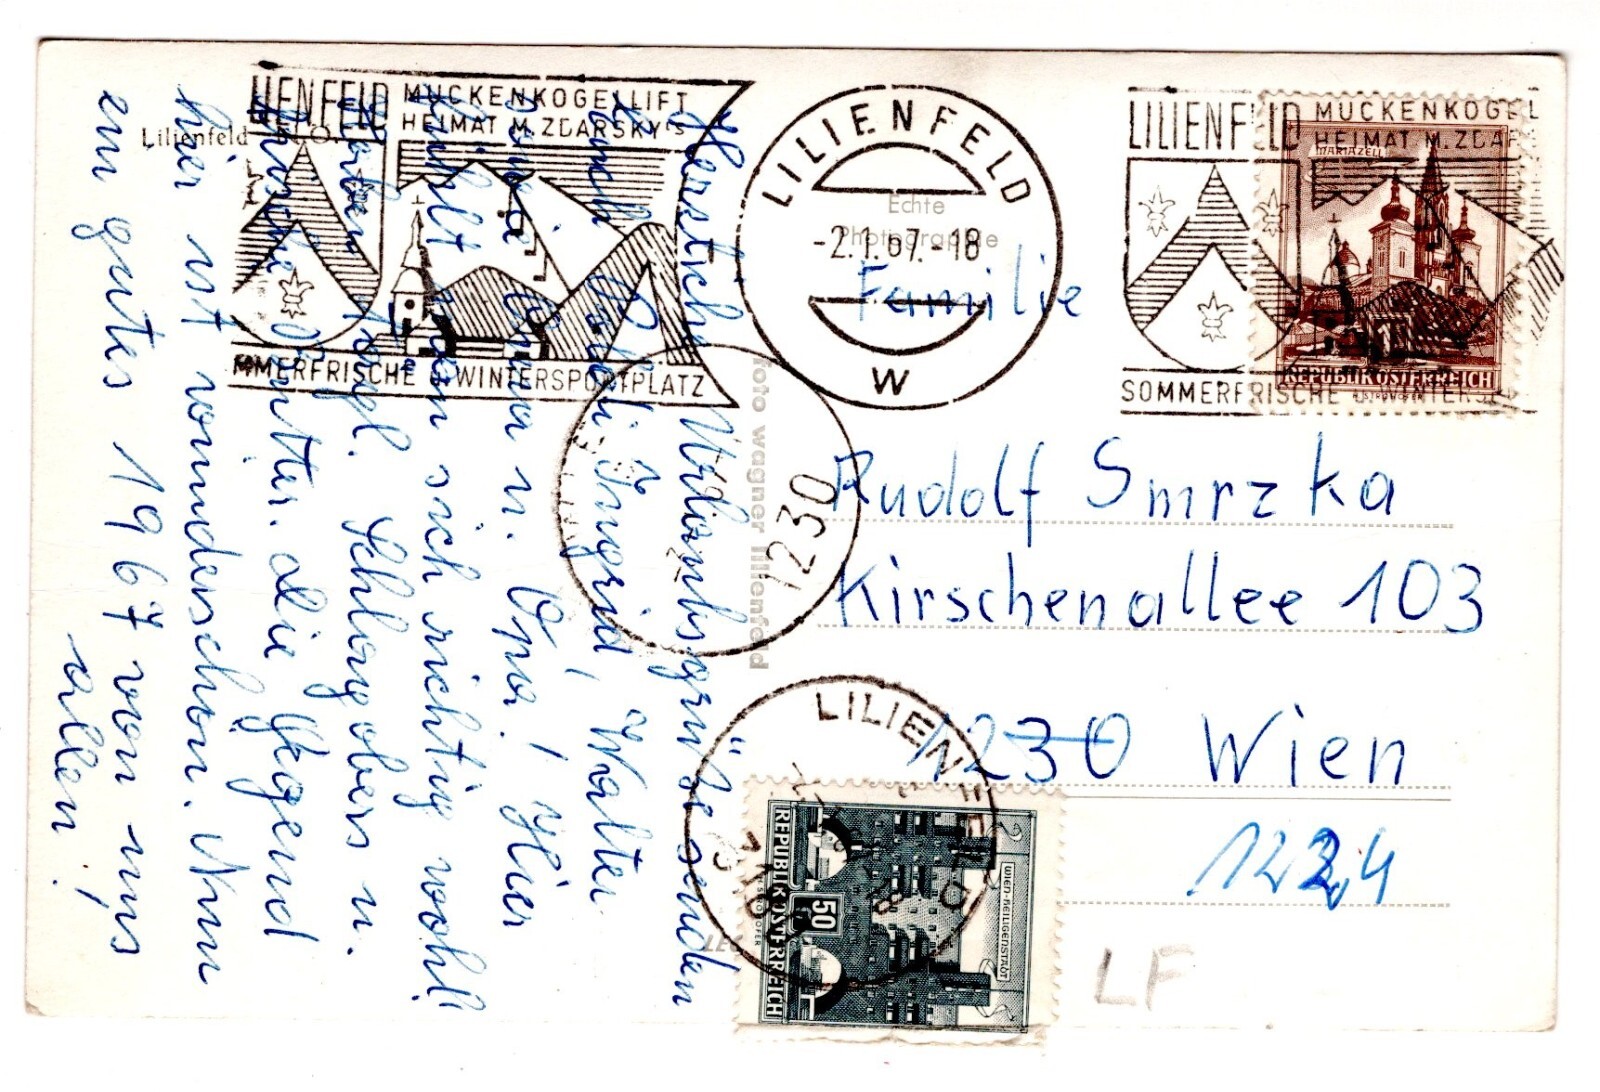 LIENFELD MUCKENKOGELLIFT
HEIMAT M. ZDARSKY'S
MMERFRISCHE WINTERSPORTPLATZ
Lilienfeld N.Ö.
LILIENFELD
-2.1.67.-18
W
Echte
Photographie
LILIENFELD MUCKENKOGEL
HEIMAT M. ZDAR
SOMMERFRISCHE WINTERS
MARIAZELL
REPUBLIK ÖSTERREICH
Herzliche Urlaubsgrüße senden
Euch Ingrid, Walter
Oma u. Opa! Hier
fühlt man sich richtig wohl!
Haben tägl. Schlagobers u.
frische Butter. Die Gegend
hier ist wunderschön. Nun
ein gutes 1967 von uns
allen!
foto wagner lilienfeld
1230
Familie
Rudolf Smrzka
Kirschenallee 103
1230 Wien
1224
LILIENFELD
WIEN-HEILIGENSTADT
50
REPUBLIK ÖSTERREICH
LF